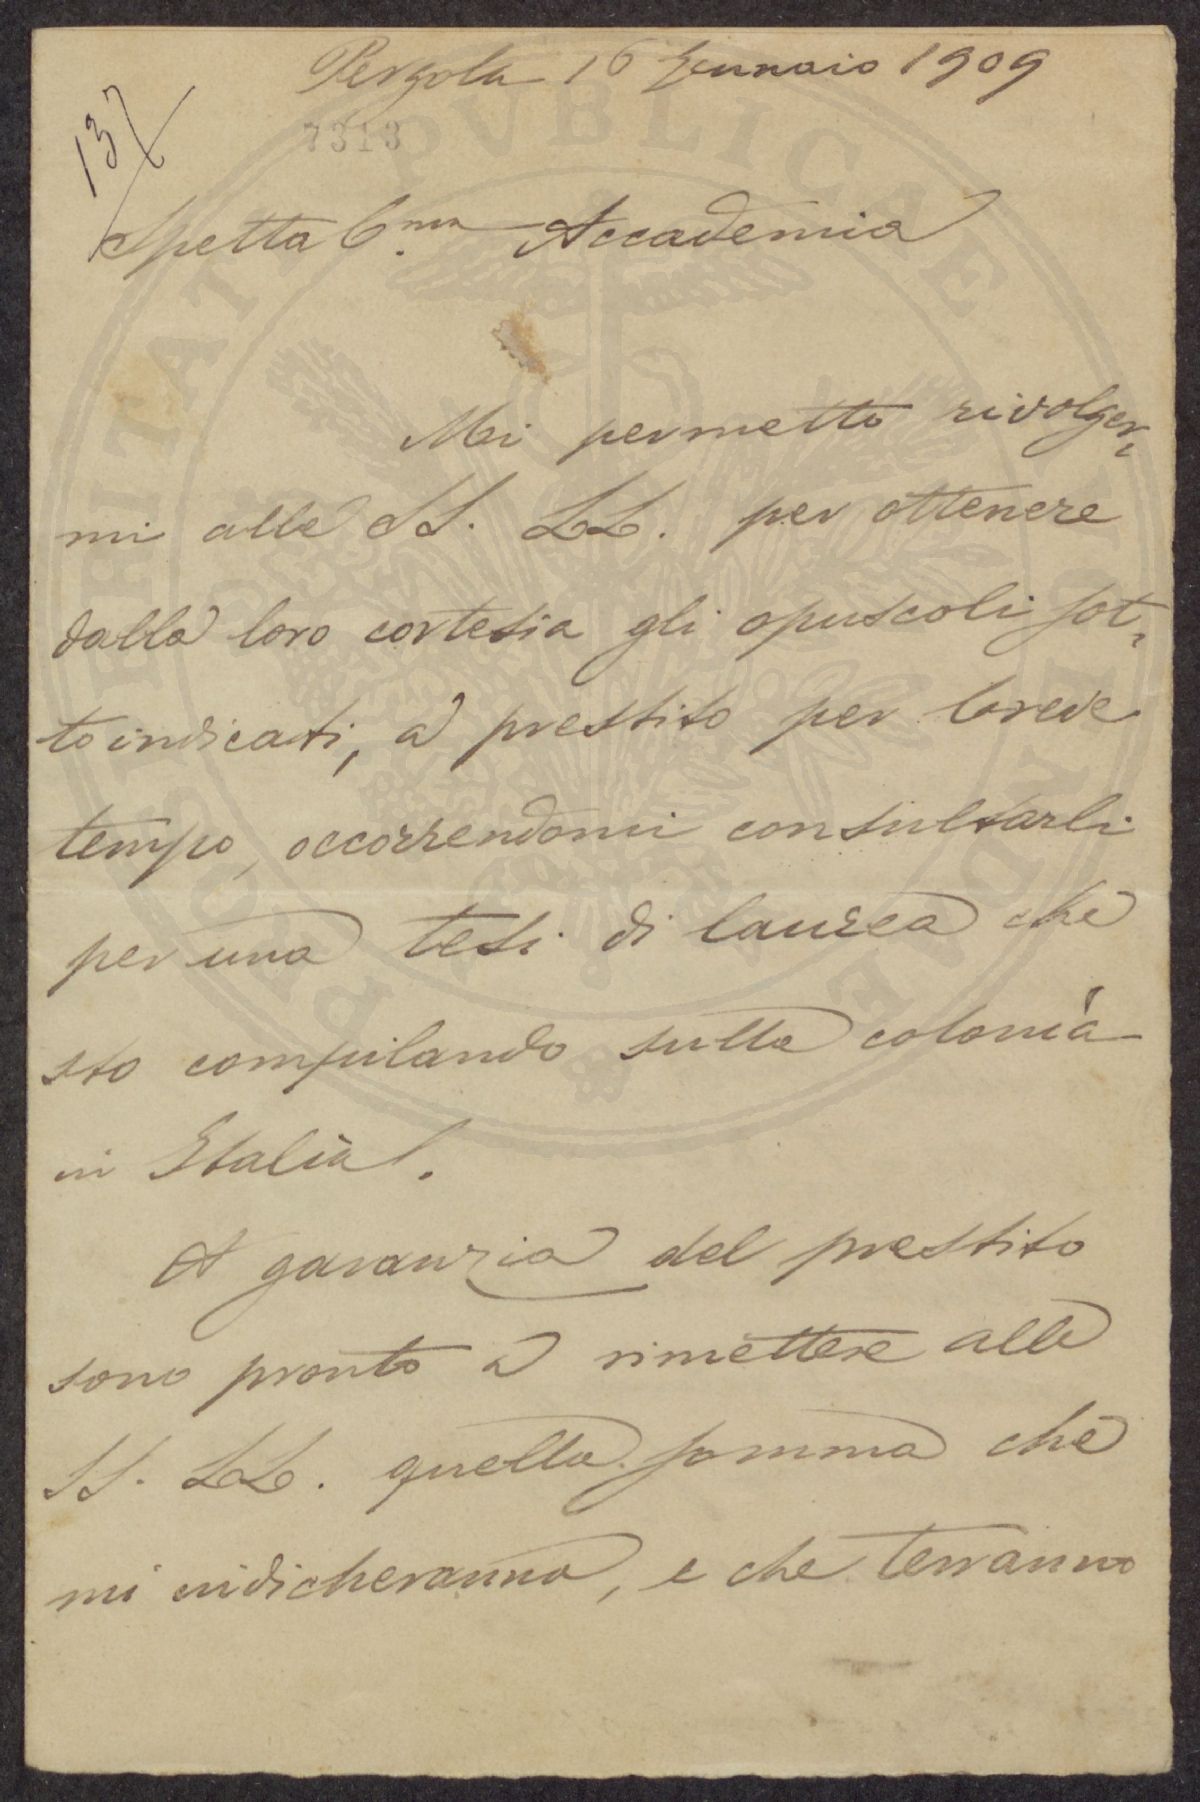 Pergola 16 Gennaio 1909
137
7313
Spettab.ma Accademia
Mi permetto rivolger-
mi alle SS. LL. per ottenere
dalla loro cortesia gli opuscoli sot-
toindicati, a prestito per breve
tempo, occorrendomi consultarli
per una tesi di laurea che
sto compilando sulla colonìa
in Italia.
A garanzia del prestito
sono pronto a rimettere alle
SS. LL. quella somma che
mi indicheranno, e che terranno
PROSPERITATI PVBLICAE AVGENDAE